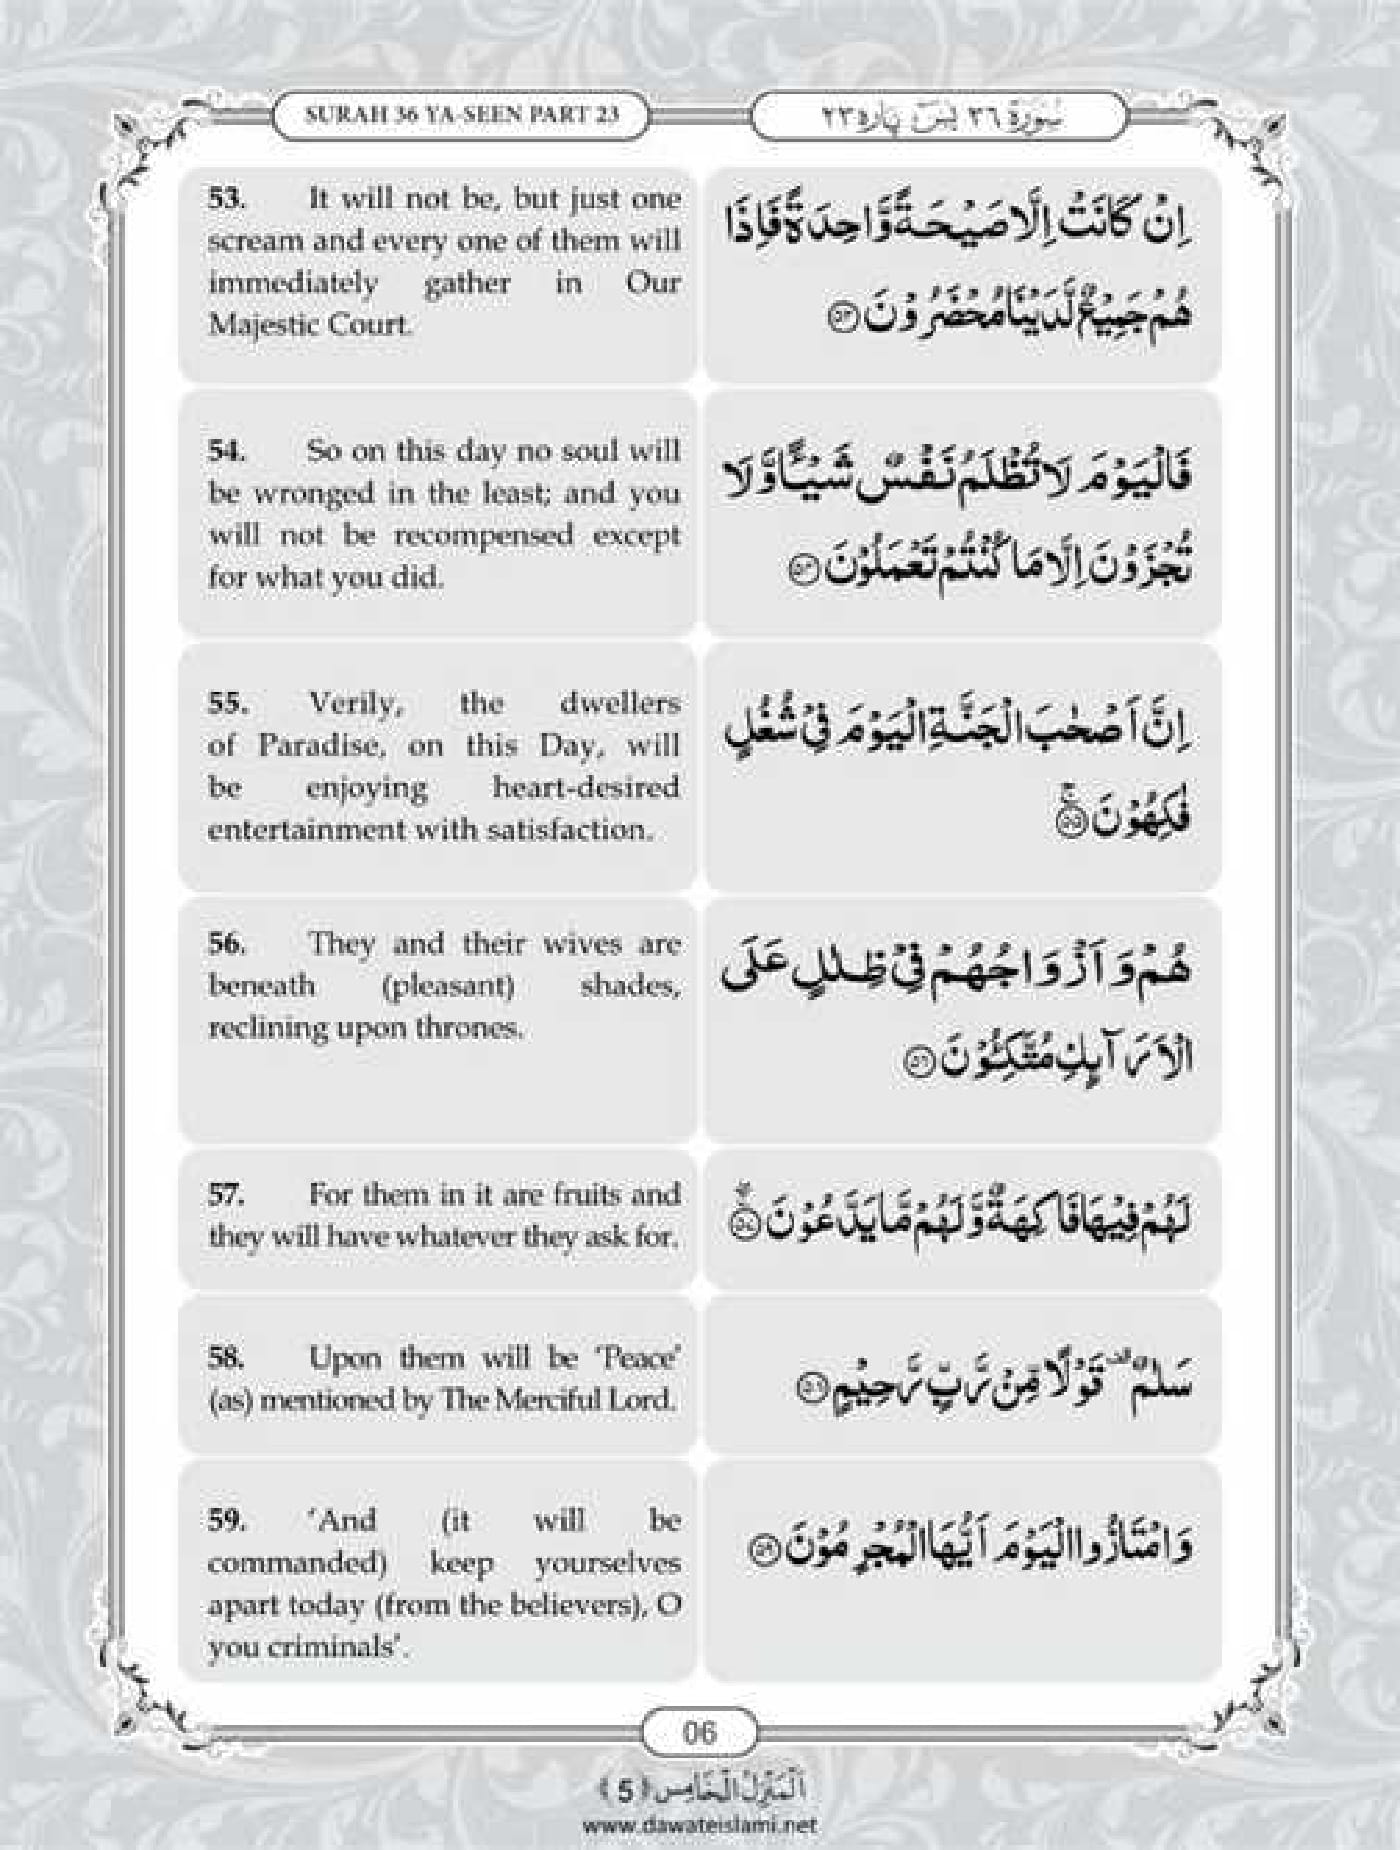 SURAH 36 YA-SEEN PART 23
سُوْرَة ٣٦ يٰسٓ پاره ٢٣
53. It will not be, but just one
scream and every one of them will
immediately gather in Our
Majestic Court.
اِنْ كَانَتْ اِلَّا صَيْحَةً وَّاحِدَةً فَاِذَا
هُمْ جَمِيْعٌ لَّدَيْنَا مُحْضَرُوْنَ ۵۳
54. So on this day no soul will
be wronged in the least; and you
will not be recompensed except
for what you did.
فَالْيَوْمَ لَا تُظْلَمُ نَفْسٌ شَيْـًٔا وَّ لَا
تُجْزَوْنَ اِلَّا مَا كُنْتُمْ تَعْمَلُوْنَ ۵۴
55. Verily, the dwellers
of Paradise, on this Day, will
be enjoying heart-desired
entertainment with satisfaction.
اِنَّ اَصْحٰبَ الْجَنَّةِ الْيَوْمَ فِيْ شُغُلٍ
فٰكِهُوْنَ ۵۵ۚ
56. They and their wives are
beneath (pleasant) shades,
reclining upon thrones.
هُمْ وَ اَزْوَاجُهُمْ فِيْ ظِلٰلٍ عَلَى
الْاَرَآىِٕكِ مُتَّكِـُٔوْنَ ۵۶
57. For them in it are fruits and
they will have whatever they ask for.
لَهُمْ فِيْهَا فَاكِهَةٌ وَّ لَهُمْ مَّا يَدَّعُوْنَ ۵۷ۚۖ
58. Upon them will be ‘Peace’
(as) mentioned by The Merciful Lord.
سَلٰمٌ ۫ قَوْلًا مِّنْ رَّبٍّ رَّحِيْمٍ ۵۸
59. ‘And (it will be
commanded) keep yourselves
apart today (from the believers), O
you criminals’.
وَ امْتَازُوا الْيَوْمَ اَيُّهَا الْمُجْرِمُوْنَ ۵۹
06
اَلْمَنْزِلُ الْخَامِس ﴿5﴾
www.dawateislami.net